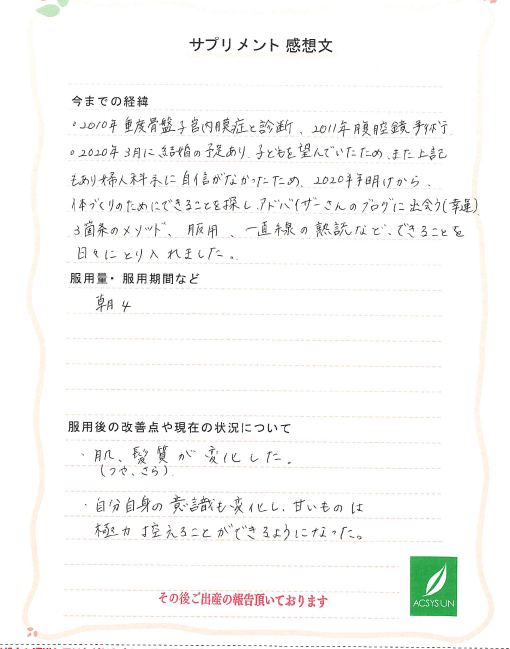 サプリメント 感想文
今までの経緯
・2010年 重度骨盤子宮内膜症と診断、2011年腹腔鏡手術行
・2020年3月に結婚の予定あり、子どもを望んでいたため、また上記
もあり婦人科系に自信がなかったため、2020年年明けから、
体づくりのためにできることを探し、アドバイザーさんのブログに出会う(幸運)
3箇条のメソッド、服用、一直線の熟読など、できることを
日々にとり入れました。
服用量・服用期間など
朝4
服用後の改善点や現在の状況について
・肌、髪質が変化した。
(つや、さら)
・自分自身の意識も変化し、甘いものは
極力控えることができるようになった。
その後ご出産の報告頂いております
ACSYSUN